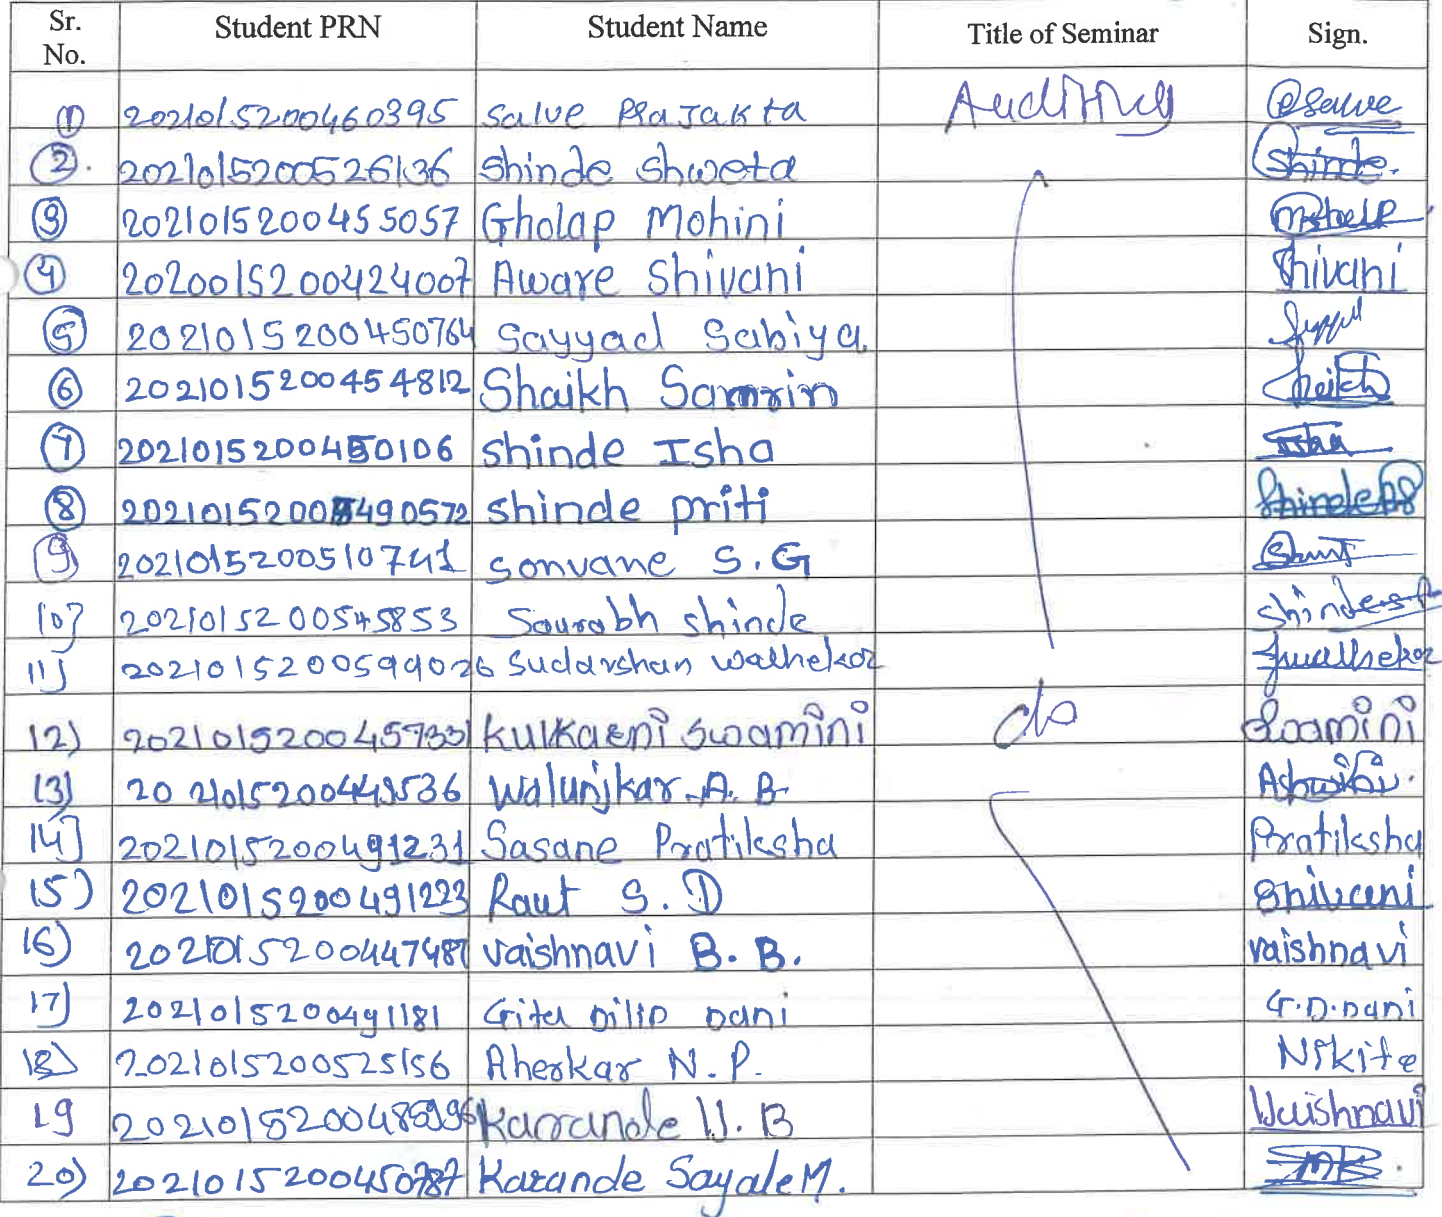 Sr. No. Student PRN Student Name Title of Seminar Sign.
1 2021015200460395 Salve Prajakta Auditing Salve
2. 2021015200526136 Shinde Shweta Shinde.
3 2021015200455057 Gholap Mohini
4 2020015200424007 Aware Shivani Shivani
5 2021015200450764 Sayyad Sabiya.
6 2021015200454812 Shaikh Samrin Sheikh
7 2021015200450106 shinde Isha Isha
8 2021015200490572 shinde priti Shinde PS
9 2021015200510741 Sonvane S.G
10) 2021015200545853 Sourabh shinde shinde
11) 2021015200599026 Sudarshan walhekar walhekar
12) 2021015200457331 Kulkarni Swamini do Swamini
13) 2021015200449536 Walunjkar A. B. Ashwini.
14) 2021015200491231 Sasane Pratiksha Pratiksha
15) 2021015200491223 Raut S. D Shivani
16) 2021015200447487 vaishnavi B. B. vaishnavi
17) 2021015200491181 Gita Dilip Dani G.D.Dani
18) 2021015200525156 Aherkar N. P. Nikita
19 Karande V. B Vaishnavi
20) 2021015200450787 Karande Sayale M.